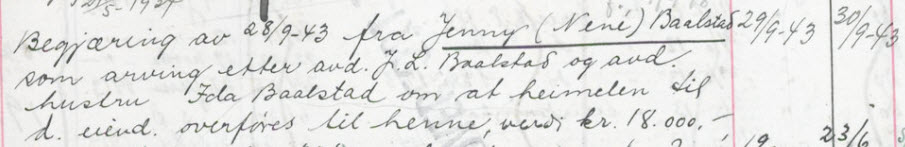 /5-1937
Begjæring av 28/9-43 fra Jenny (Nene) Baalstad 29/9-43 30/9-43
som arving etter avd. J. L. Baalstad og avd.
hustru Ida Baalstad om at heimelen til
d. eiend. overføres til henne, verdi kr. 18.000,-
23/6